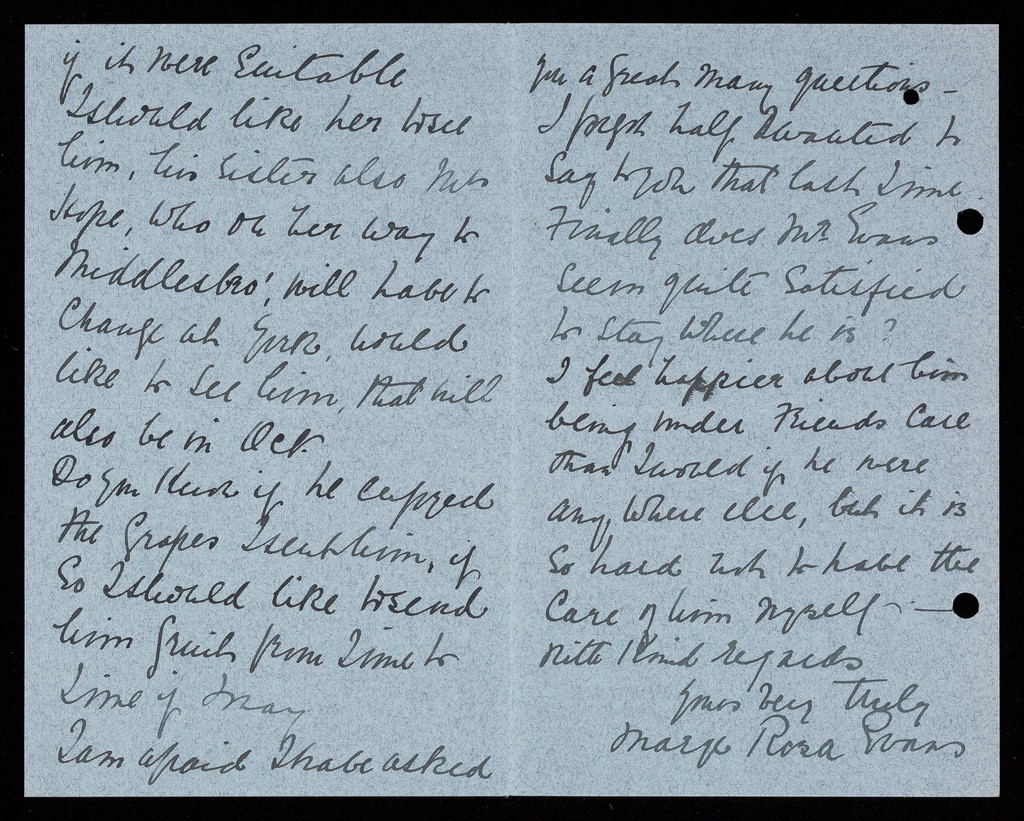 if it were Suitable
I should like her to see
him, his sister also Mrs
Hope, who on her way to
Middlesbro', will have to
Change at York, would
like to See him, that will
also be in Oct.
Do you Know if he enjoyed
the Grapes I sent him, if
So I should like to send
him fruit from Time to
Time if I may
I am afraid I have asked
you a great many questions –
I forgot half I wanted to
Say to you that last Time.
Finally does Mr. Evans
Seem quite Satisfied
to stay where he is?
I feel happier about him
being under Friends Care
than I would if he were
any where else, but it is
So hard not to have the
Care of him myself –
With Kind regards
Yours very truly
Mary Rosa Evans